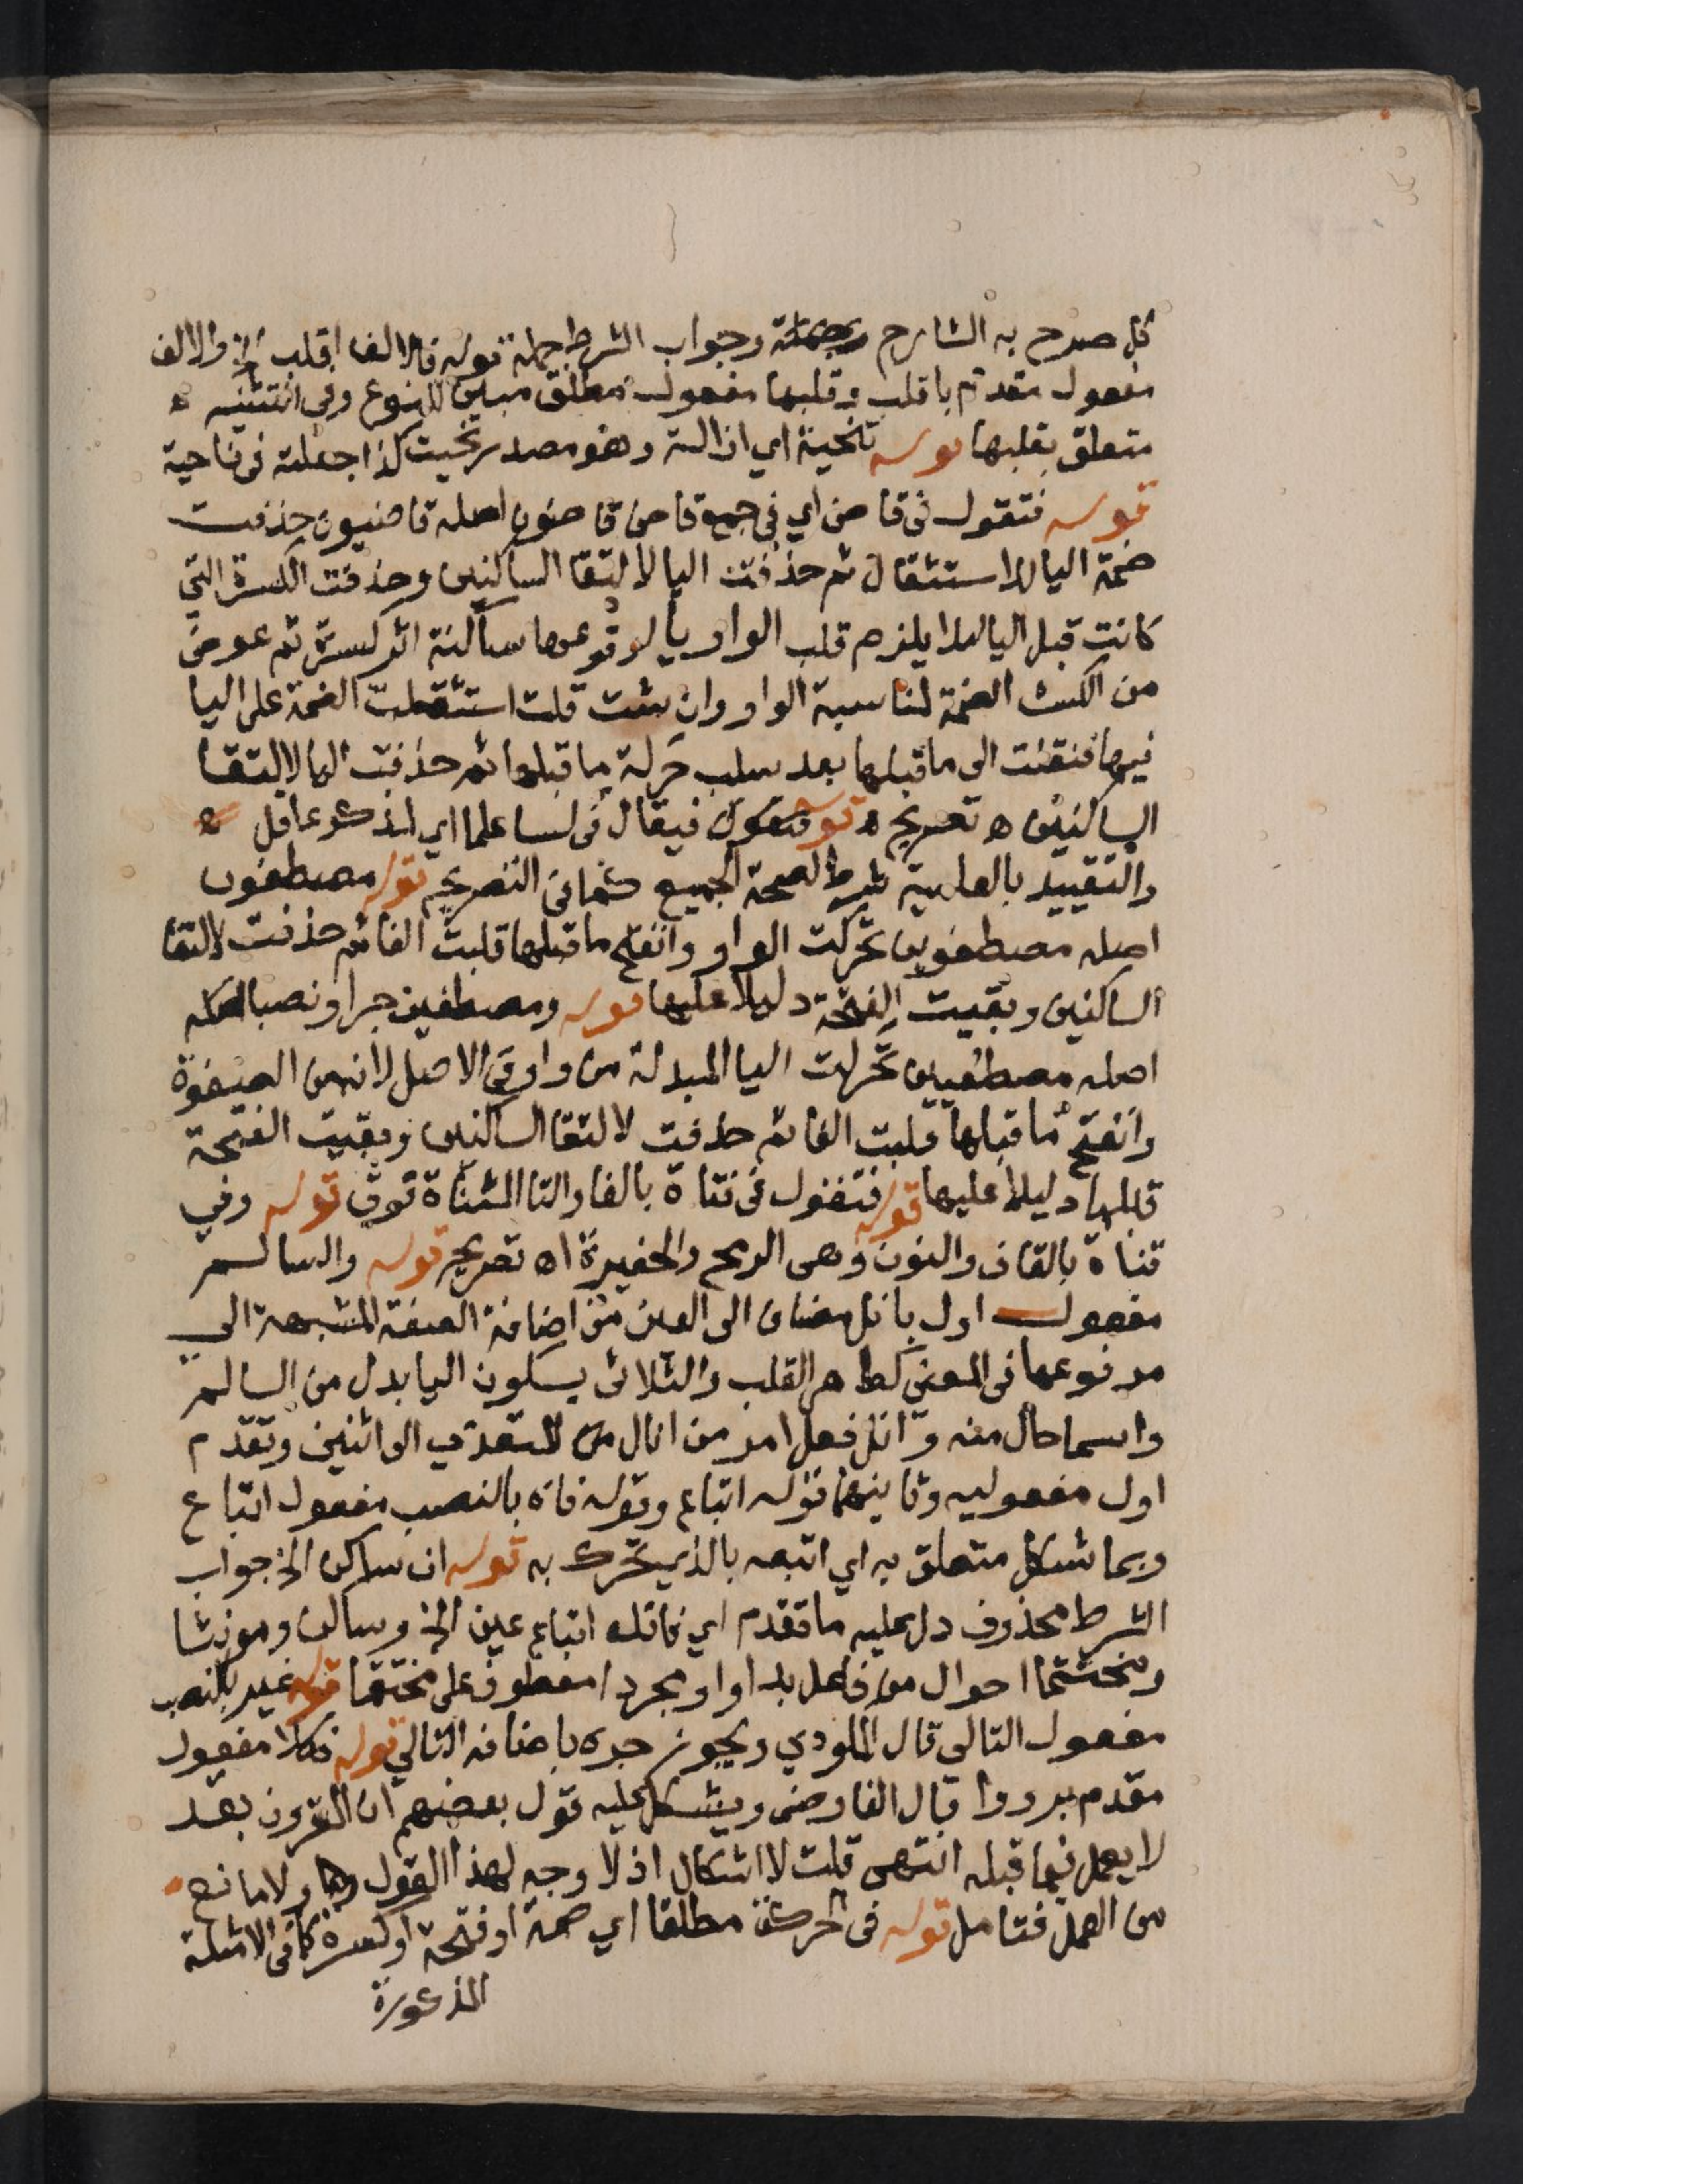 كما صرح به الشارح وجواب الشرط جملة قوله فالالف اقلب الخ والالف
مفعول مقدم باقلب وقلبها مفعول مطلق مبين للنوع وفي التثنيه ه
متعلق بقلبها قوله تنحية اي ازالة وهو مصدر نحيت كذا جعلته في ناحية
قوله فتقول في قاض اي في جمع قاض قاضون اصله قاضيون حذفت
ضمة اليا للاستثقال ثم حذفت اليا لالتقا الساكنين وحذفت الكسرة التي
كانت قبل اليا لئلا يلزم قلب الواو يا لوقوعها ساكنة اثر كسرة ثم عوض
من الكسرة الضمة لمناسبة الواو وان شئت قلت استثقلت الضمة على اليا
فيها فنقلت الى ما قبلها بعد سلب حركة ما قبلها ثم حذفت اليا لالتقا
الساكنين اه تصريح قوله فيقال في لسا علما اي لمذكر عاقل ه
والتقييد بالعلمية شرط لصحة الجمع كما في التصريح قوله مصطفون
اصله مصطفوون تحركت الواو وانفتح ما قبلها قلبت الفا ثم حذفت لالتقا
الساكنين وبقيت الفتحة دليلا عليها قوله ومصطفين جرا ونصبا
اصله مصطفيين تحركت اليا المبدلة من واو في الاصل لانه من الصفوة
وانفتح ما قبلها قلبت الفا ثم حذفت لالتقا الساكنين وبقيت الفتحة
قبلها دليلا عليها قوله فتقول في فتاة بالفا والتا المثناة فوق قوله وفي
قناة بالقاف والنون وهي الرمح والحفيرة اه تصريح قوله والسالم
مفعول اول بانل مضاف الى العين من اضافة الصفة المشبهة الى
مرفوعها في المعنى كطاهر القلب والثلاثى بسكون اليا بدل من السالم
واسما حال منه وانل فعل امر من انال المتعدي الى اثنين وتقدم
اول مفعوليه وثانيهما قوله اتباع وقوله فاه بالنصب مفعول اتباع
وبما شكل متعلق به اي اتبعه بالذي تحرك به قوله ان ساكن الخ جواب
الشرط محذوف دل عليه ما تقدم اي فانله اتباع عين الخ وساكن ومونثا
ومختتما احوال من فاعل بدا او مجردا معطوف على مختتما قوله غير بالنصب
مفعول التالي قال المكودي ويجوز جره باضافه التالي قوله فكلا مفعول
مقدم برووا قال الفارضى ويشكل عليه قول بعضهم ان المقرون بعد
لا يعمل فيما قبله انتهى قلت لا اشكال اذ لا وجه لهذا القول هنا ولا مانع
من العمل فتامل قوله في حركة مطلقا اي ضمة او فتحة او كسرة كما في الامثلة
المذكورة